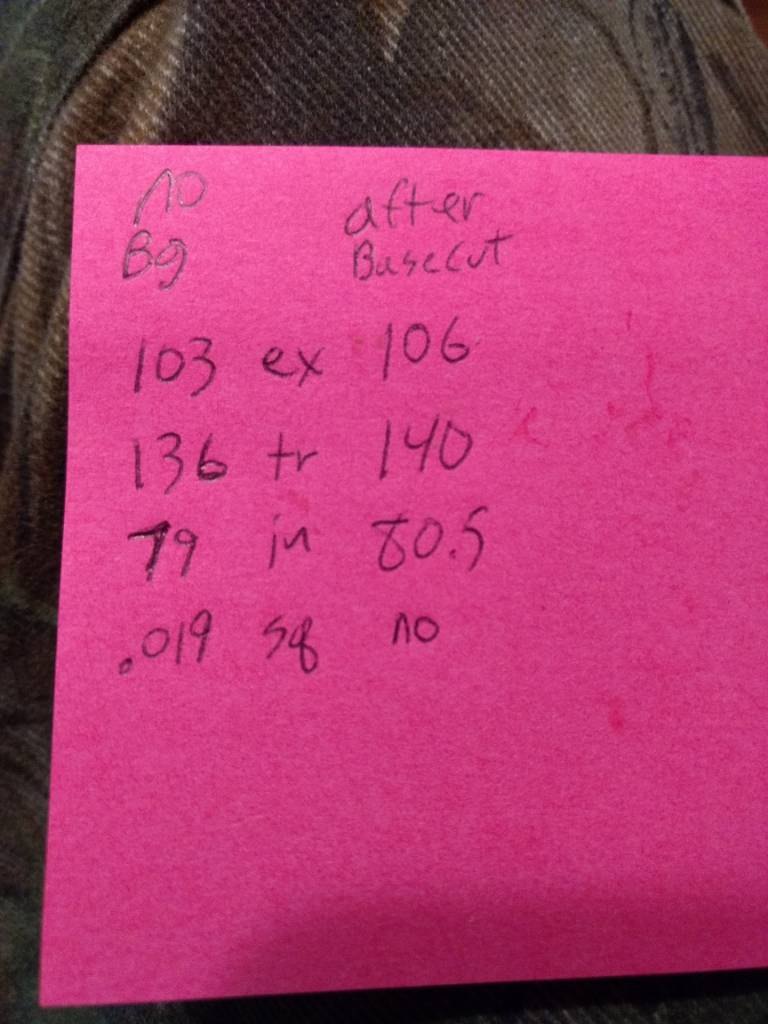 no after
Bg Basecut
103 ex 106
136 tr 140
79 in 80.5
.019 sq no